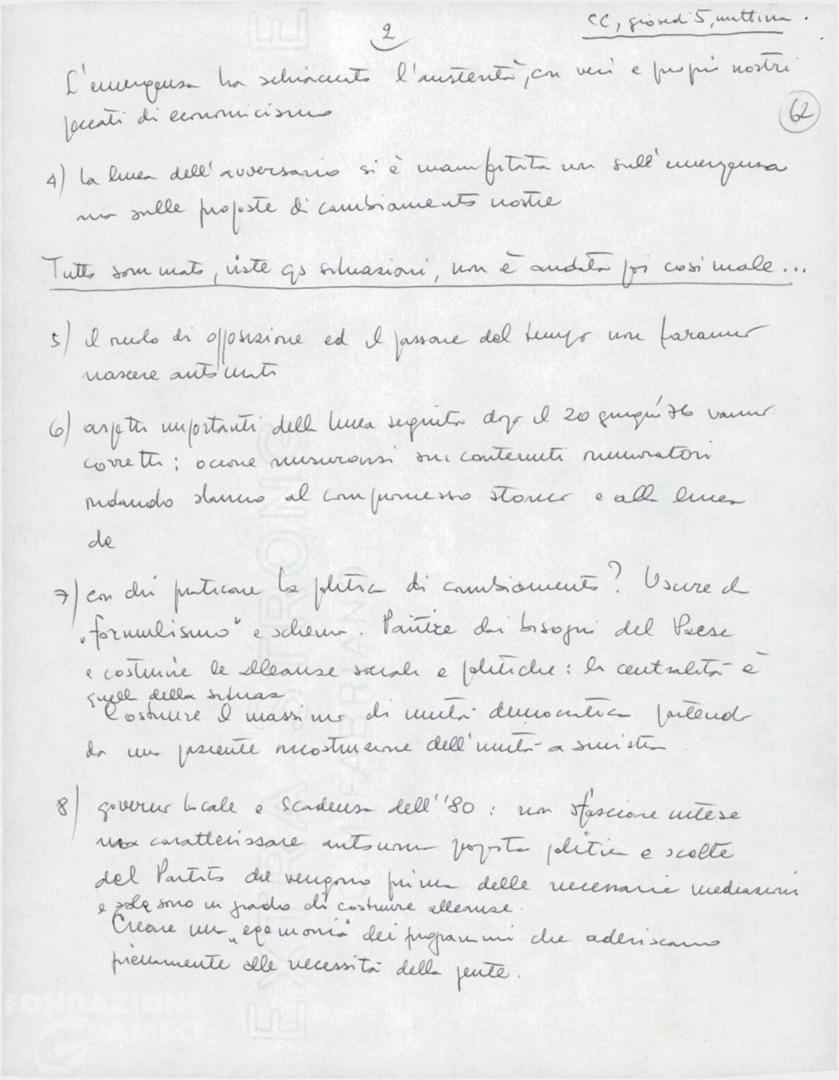 2
CC, giovedì 5, mattina.
L'emergenza ha schiacciato l'austerità, con veri e propri nostri
peccati di economicismo
62
4) la linea dell'avversario si è manifestata non sull'emergenza
ma sulle proposte di cambiamento nostre
Tutto sommato, viste qs situazioni, non è andata poi così male...
5) il ruolo di opposizione ed il passare del tempo non faranno
nascere
6) aspetti importanti della linea seguita dopo il 20 giugno '76 vanno
corretti; occorre misurarsi sui contenuti rinnovatori
ridando slancio al compromesso storico e alla linea
de
7) con chi praticare la politica di cambiamento? Uscire da
"formulismo" e schemi. Partire dai bisogni del Paese
e costruire le alleanze sociali e politiche: la centralità è
quella della
Costruire il massimo di unità democratica partendo
da una paziente ricostruzione dell'unità a sinistra
8) governo locale e scadenza dell'80: non sfasciare intese
ma caratterizzare autonoma proposta politica e scelte
del Partito che vengono prima delle necessarie mediazioni
e sole sono in grado di costruire alleanze.
Creare una "egemonia" dei programmi che aderiscano
pienamente alle necessità della gente.
EXTRA STRONG
FABRIANO
FONDAZIONE
GRAMSCI